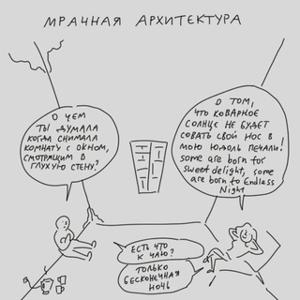 МРАЧНАЯ АРХИТЕКТУРА
О ЧЕМ
ТЫ ДУМАЛА
КОГДА СНИМАЛА
КОМНАТУ С ОКНОМ,
СМОТРЯЩИМ В
ГЛУХУЮ СТЕНУ?
О ТОМ,
ЧТО КОВАРНОЕ
СОЛНЦЕ НЕ БУДЕТ
СОВАТЬ СВОЙ НОС В
МОЮ ЮДОЛЬ ПЕЧАЛИ!
some are born for
sweet delight, some
are born to Endless
Night
ЕСТЬ ЧТО
К ЧАЮ?
ТОЛЬКО
БЕСКОНЕЧНАЯ
НОЧЬ